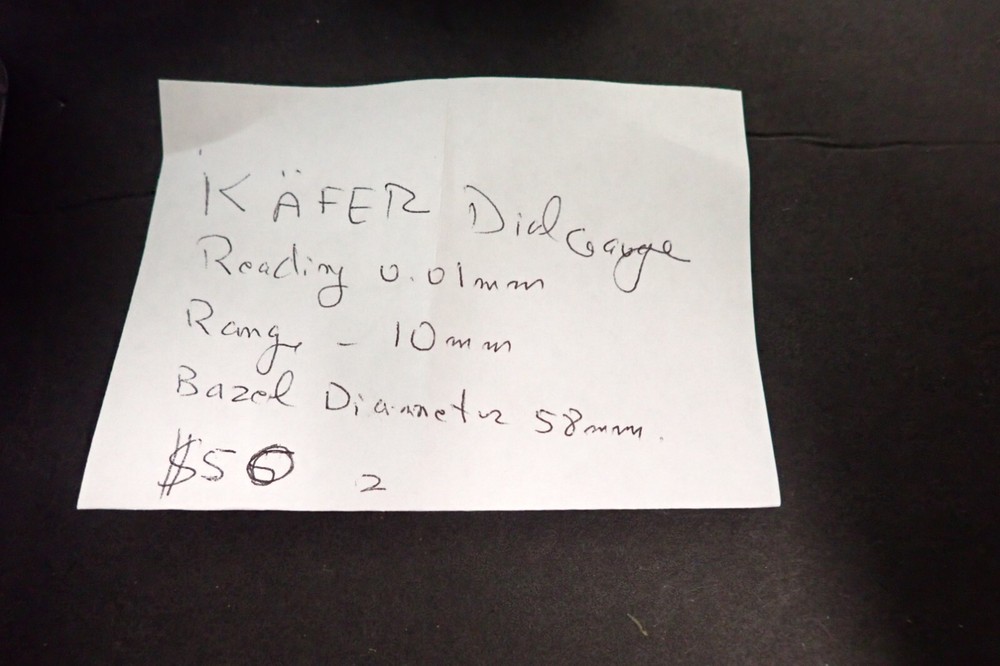 KÄFER Dial Gauge
Reading 0.01mm
Range - 10mm
Bazel Diameter 58mm.
$50 2